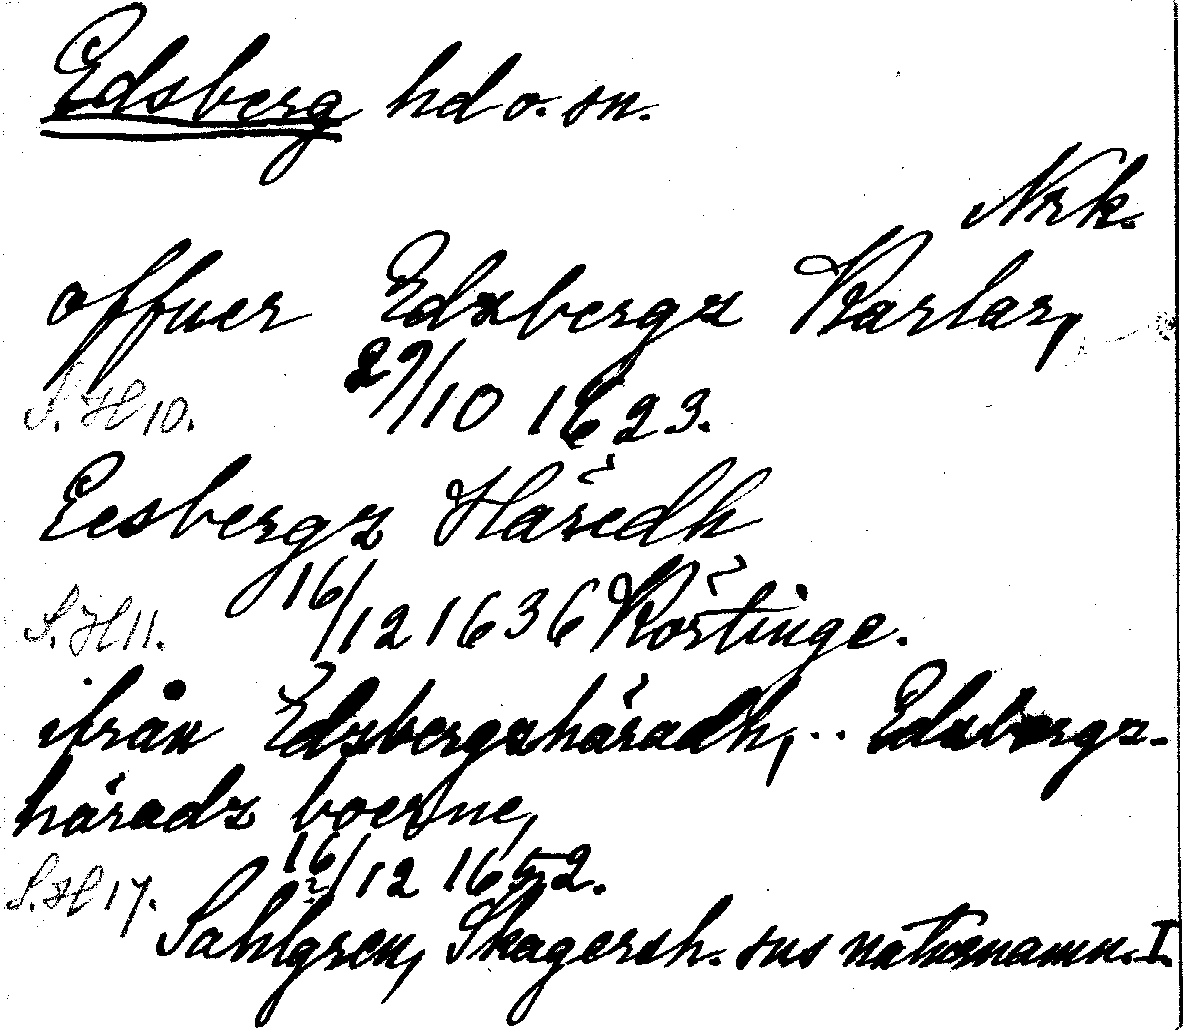 Edsberg hd o. sn.
Nrk.
offuer Edzbergz Karlar,
S.H 10. 29/10 1623.
Eesbergz Häredh
S.H 11. 16/12 1636 Körtinge.
ifrån Edzbergzhäradh, .. Edzbergz-
häradz boerne,
S.H 17. 16/12 1652.
Sahlgren, Skagersh. sns naturnamn. I.